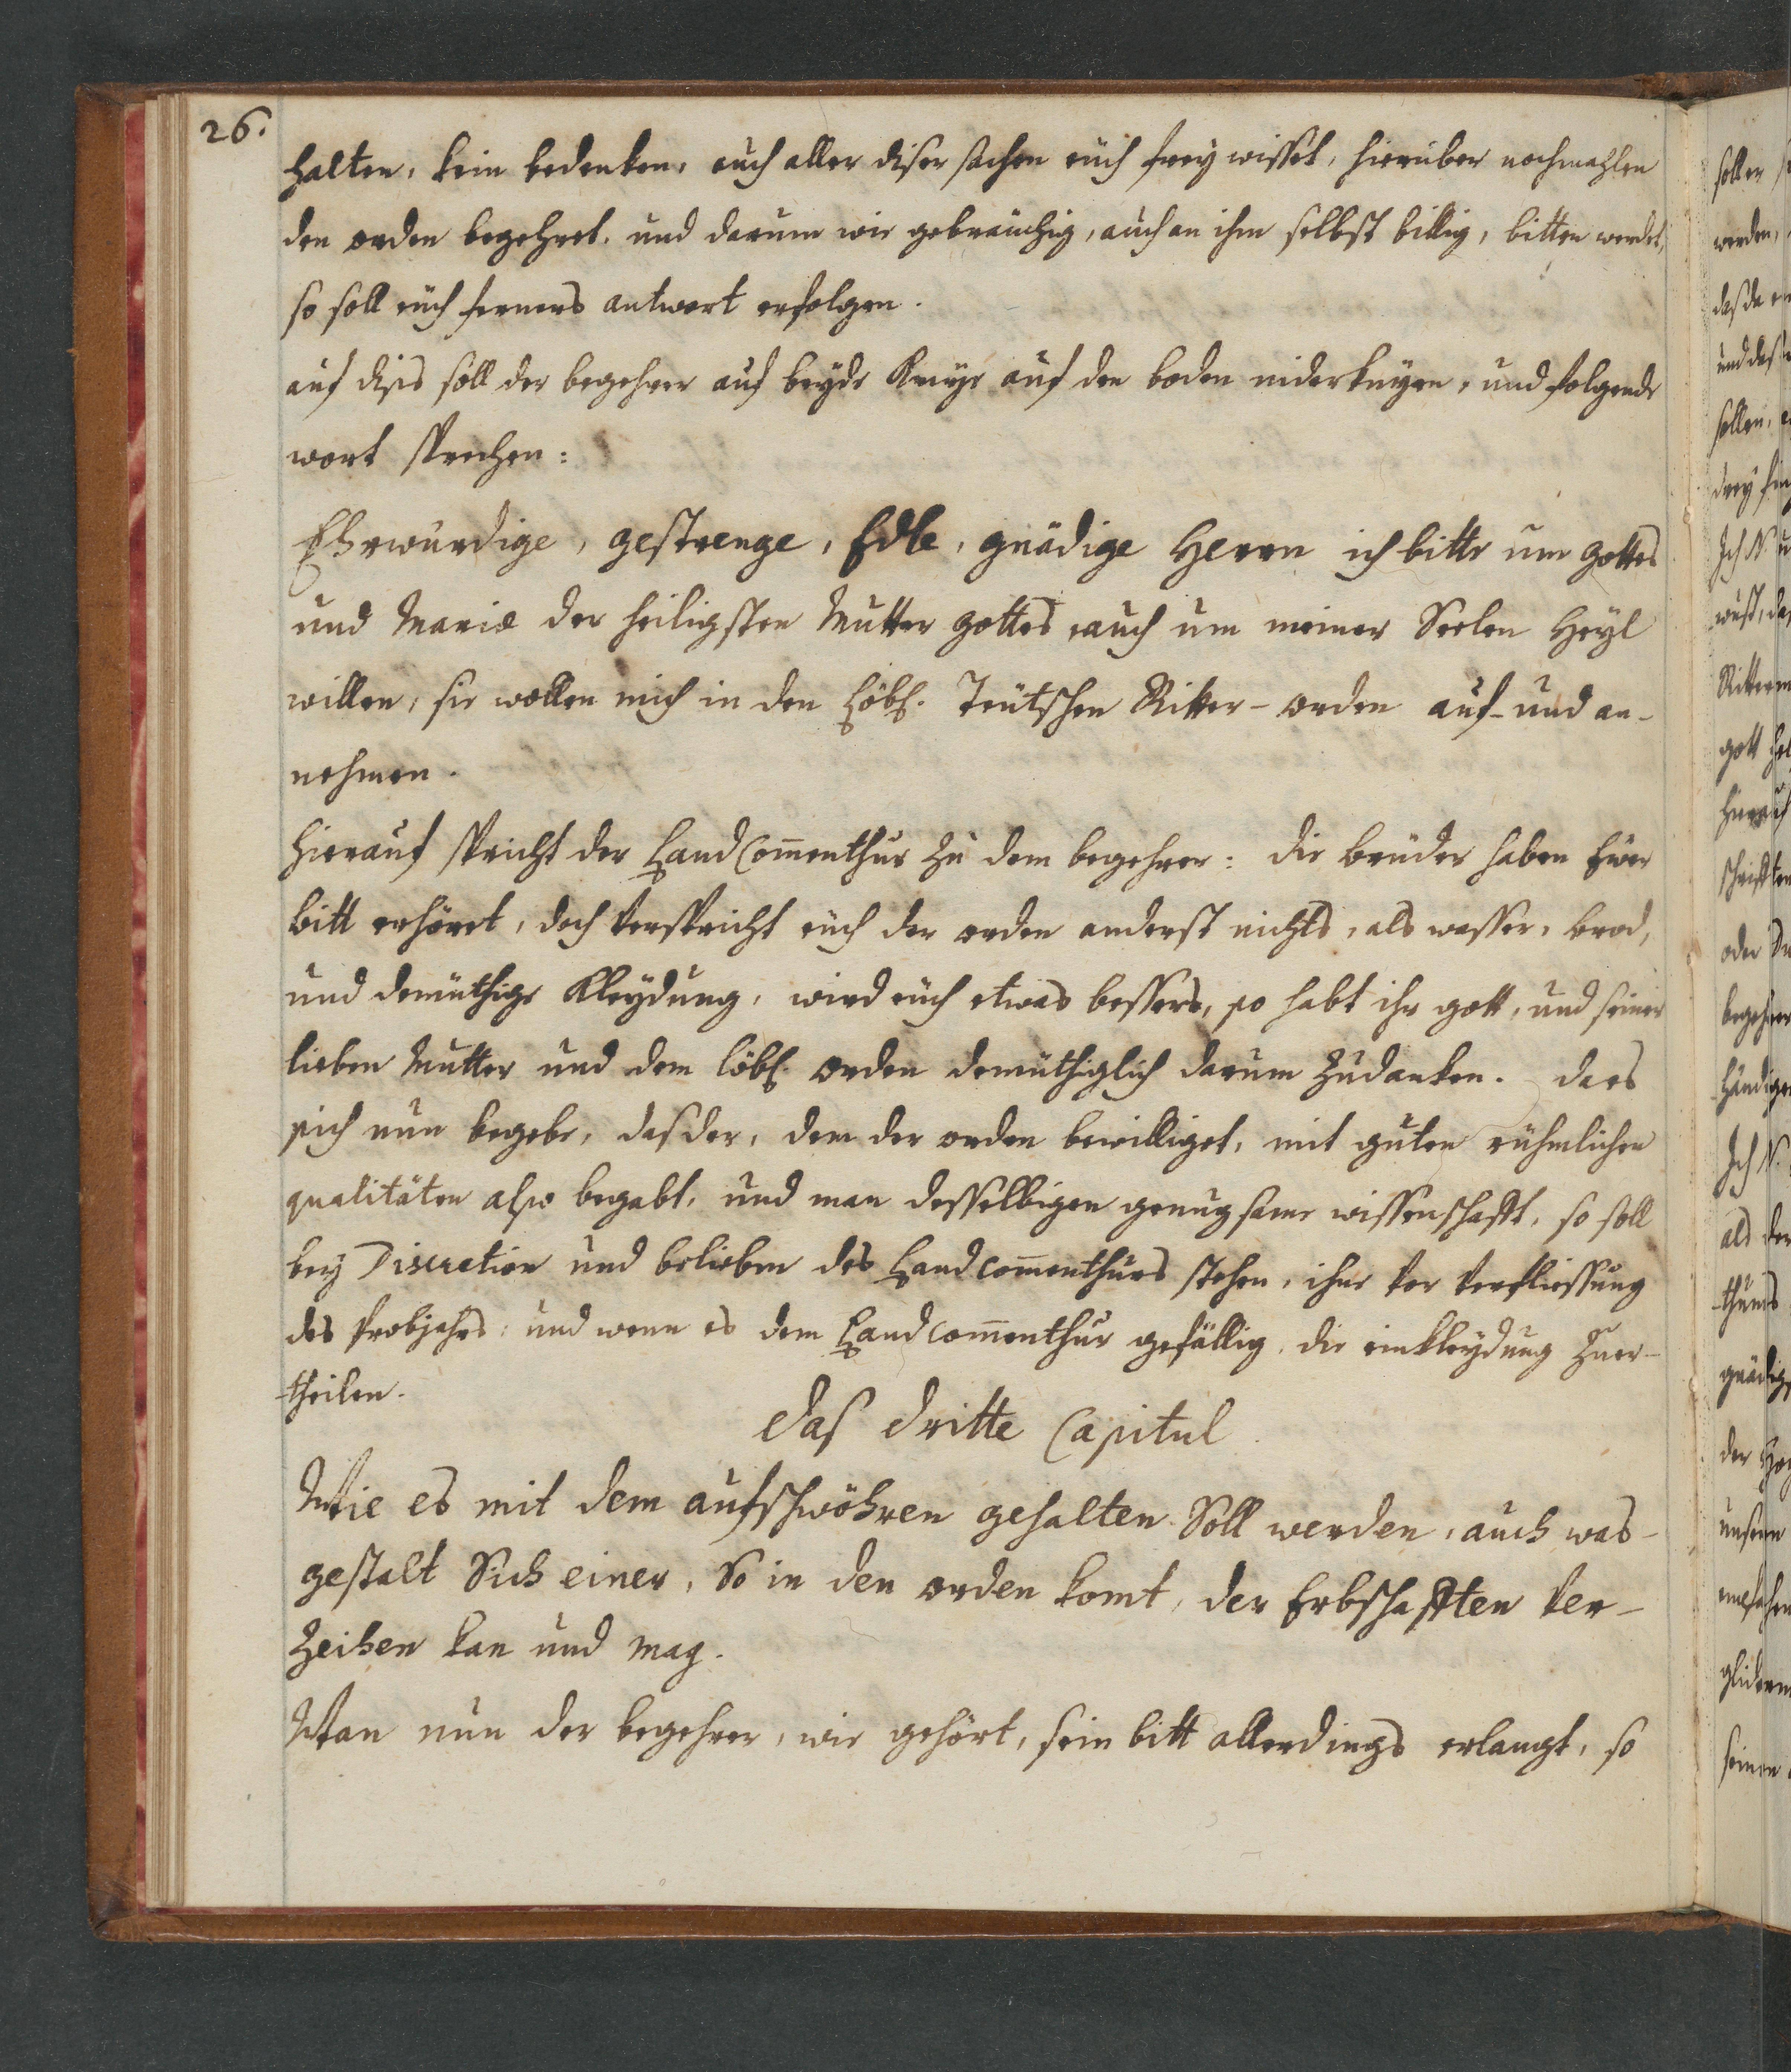 26.
halten, kein bedenken, auch aller diser sachen eüch frey wisset, hierüber nochmahlen
den orden begehret, und darum wie gebräuchig, auch an ihm selbst billig, bitten werdet,
so soll eüch ferners antwort erfolgen.
auf dises soll der begehrer auf beyde Knÿe auf den boden niderknÿen, und folgende
wort sprechen:
Ehrwürdige, gestrenge, Edle, gnädige Herrn ich bitte um gottes
und Mariæ der heiligsten Mutter gottes, auch um meiner Seelen Heyl
willen, sie wollen mich in den Löbl. Teütschen Ritter-orden auf- und an-
nehmen.
Hierauf spricht der LandCom̄enthur zu dem begehrer: die brüder haben Eüer
bitt erhöret, doch verspricht eüch der orden anderst nichts, als wasser, brod,
und demüthige Kleydung, wird eüch etwas bessers, so habt ihr gott, und seiner
lieben Mutter und dem löbl. orden demüthiglich darum zudanken. da es
sich nun begebe, das der, dem der orden bewilliget, mit guten rühmlichen
qualitäten also begabt, und man desselbigen genugsame wissenschafft, so soll
bey Discretion und belieben des Landcom̄enthurs stehen, ihme vor verfliessung
des probjahrs: und wenn es dem Landcom̄enthur gefällig, die einkleydung zuer-
-theilen.
das dritte Capitul
Wie es mit dem aufschwöhren gehalten Soll werden, auch was-
gestalt Sich einer, So in den orden komt, der Erbschafften ver-
zeihen kan und mag.
Wan nun der begehrer, wie gehört, sein bitt allerdings erlangt, so